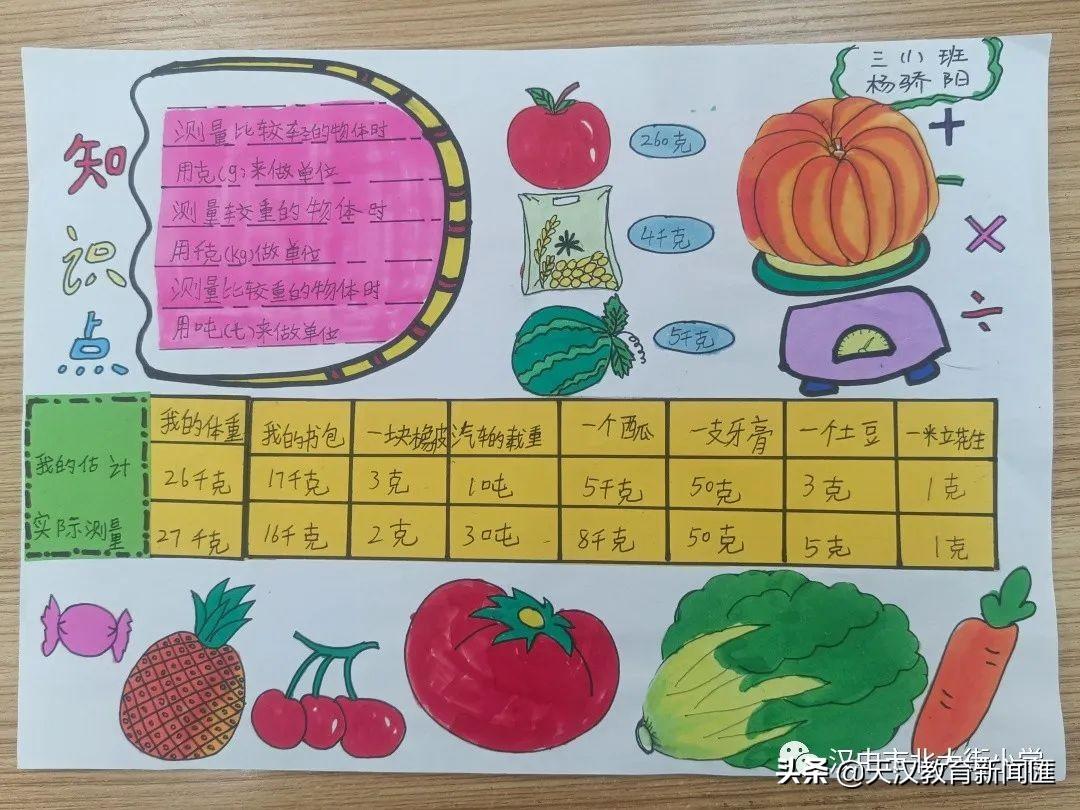 知识点
测量比较轻的物体时
用克(g)来做单位
测量较重的物体时
用千克(kg)做单位
测量比较重的物体时
用吨(t)来做单位
260克
4千克
5千克
三(1)班
杨骄阳
+
-
×
÷
我的体重 我的书包 一块橡皮 汽车的载重 一个西瓜 一支牙膏 一个土豆 一米立花生
我的估计 26千克 17千克 3克 10吨 5千克 50克 3克 1克
实际测量 27千克 16千克 2克 30吨 8千克 50克 5克 1克
汉中市北大街小学
头条@天汉教育新闻匯